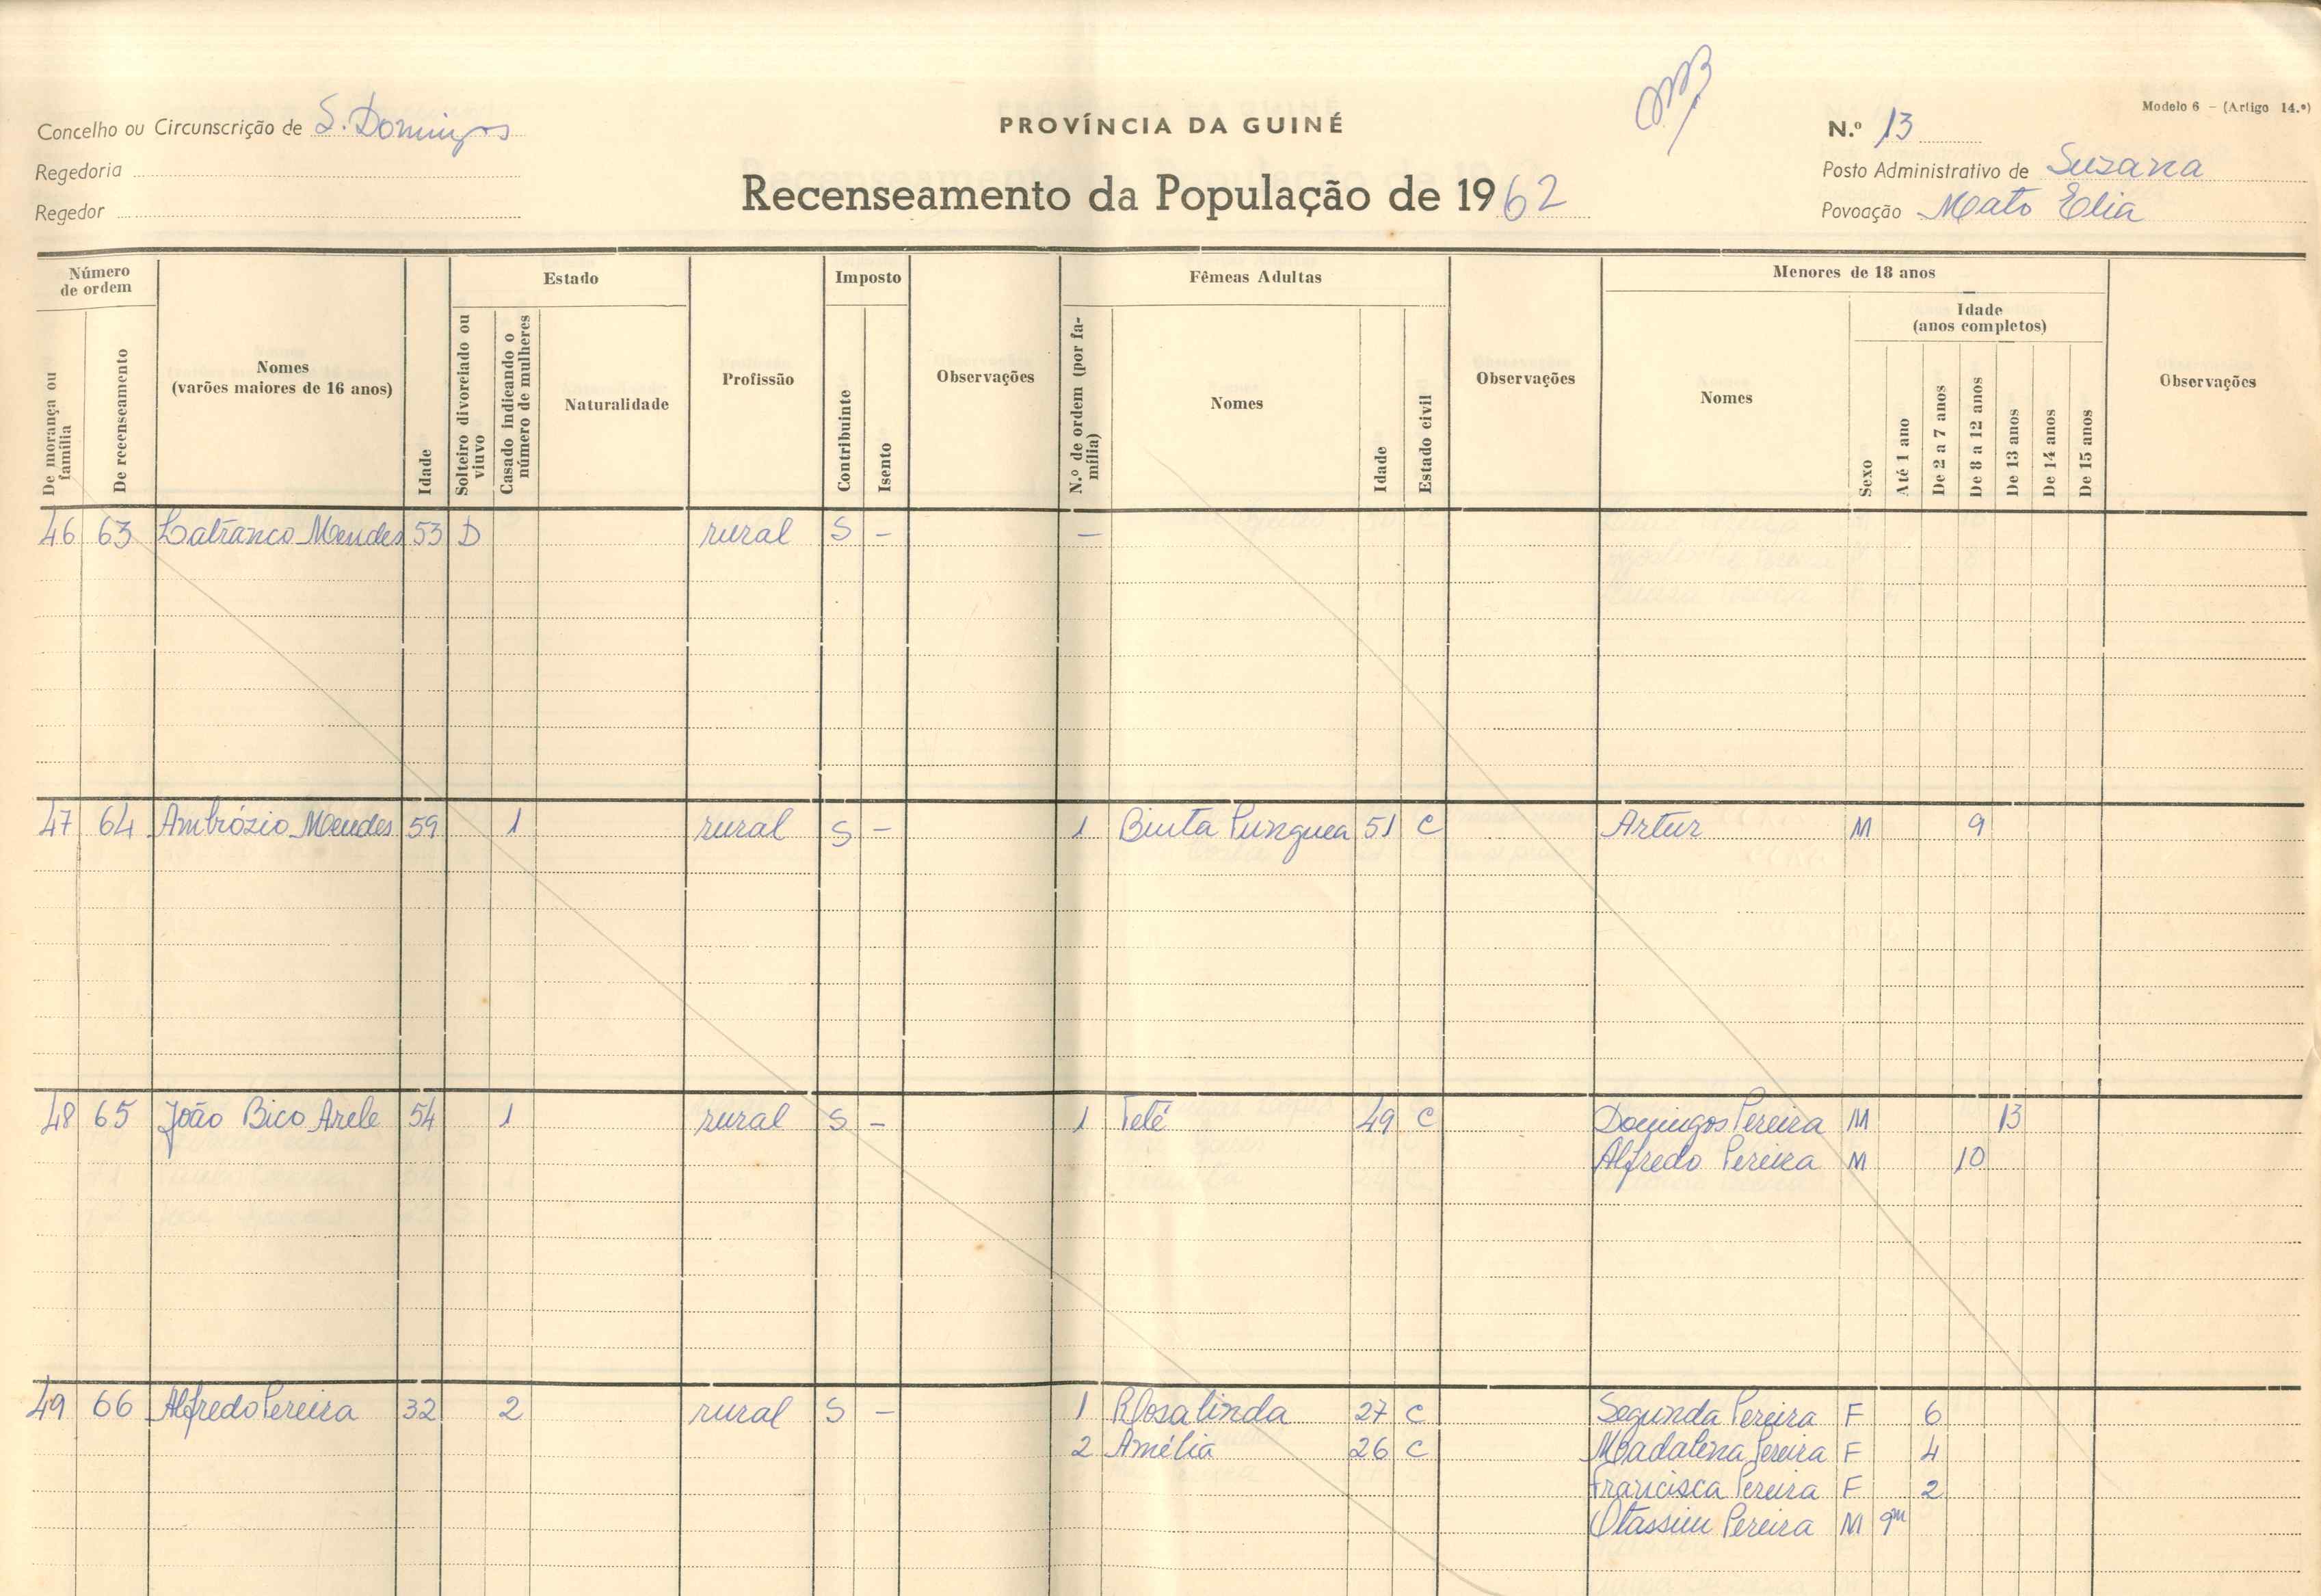 Modelo 6 — (Artigo 14.º)
Concelho ou Circunscrição de S. Domingos
PROVÍNCIA DA GUINÉ
N.º 13
Regedoria
Posto Administrativo de Suzana
Regedor
Recenseamento da População de 1962
Povoação Mato Elia
Número de ordem
De morança ou família
De recenseamento
Nomes
(varões maiores de 16 anos)
Idade
Estado
Solteiro divorciado ou viuvo
Casado indicando o número de mulheres
Naturalidade
Profissão
Imposto
Contribuinte
Isento
Observações
Fêmeas Adultas
N.º de ordem (por família)
Nomes
Idade
Estado civil
Observações
Menores de 18 anos
Nomes
Sexo
Idade
(anos completos)
Até 1 ano
De 2 a 7 anos
De 8 a 12 anos
De 13 anos
De 14 anos
De 15 anos
Observações
46 63 Mendes 53 D rural S – –
47 64 Ambrózio Mendes 59 1 rural S – 1 Binta Punguea 51 C Artur M 9
48 65 João Bico Arele 54 1 rural S – 1 Teté 49 C Domingos Pereira M 13
Alfredo Pereira M 10
49 66 Alfredo Pereira 32 2 rural S – 1 Rosalinda 27 C Segunda Pereira F 6
2 Amélia 26 C Madalena Pereira F 4
Francisca Pereira F 2
Pereira M 9m